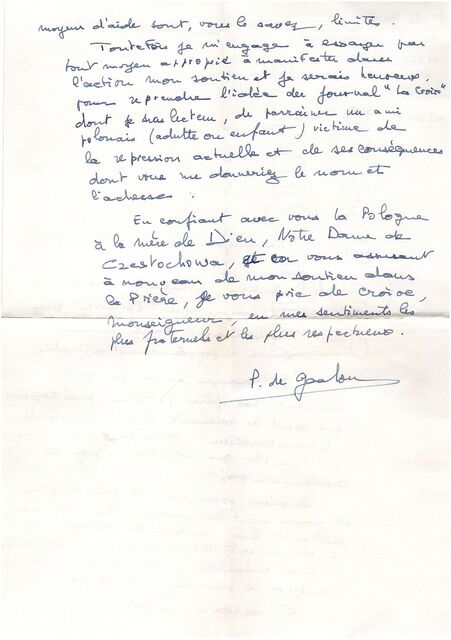 moyens d'aide sont, vous le savez, limités.
Toutefois je m'engage à essayer par
tout moyen approprié à manifester dans
l'action mon soutien et je serais heureux,
pour reprendre l'idée du journal "La Croix"
dont je suis lecteur, de parrainer un ami
polonais (adulte ou enfant) victime de
la répression actuelle et de ses conséquences
dont vous me donneriez le nom et
l'adresse.
En confiant avec vous la Pologne
à la mère de Dieu, Notre Dame de
Czestochowa, vous assurant
à nouveau de mon soutien dans
la Prière, je vous prie de croire,
Monseigneur, en mes sentiments les
plus fraternels et les plus respectueux.
P. de